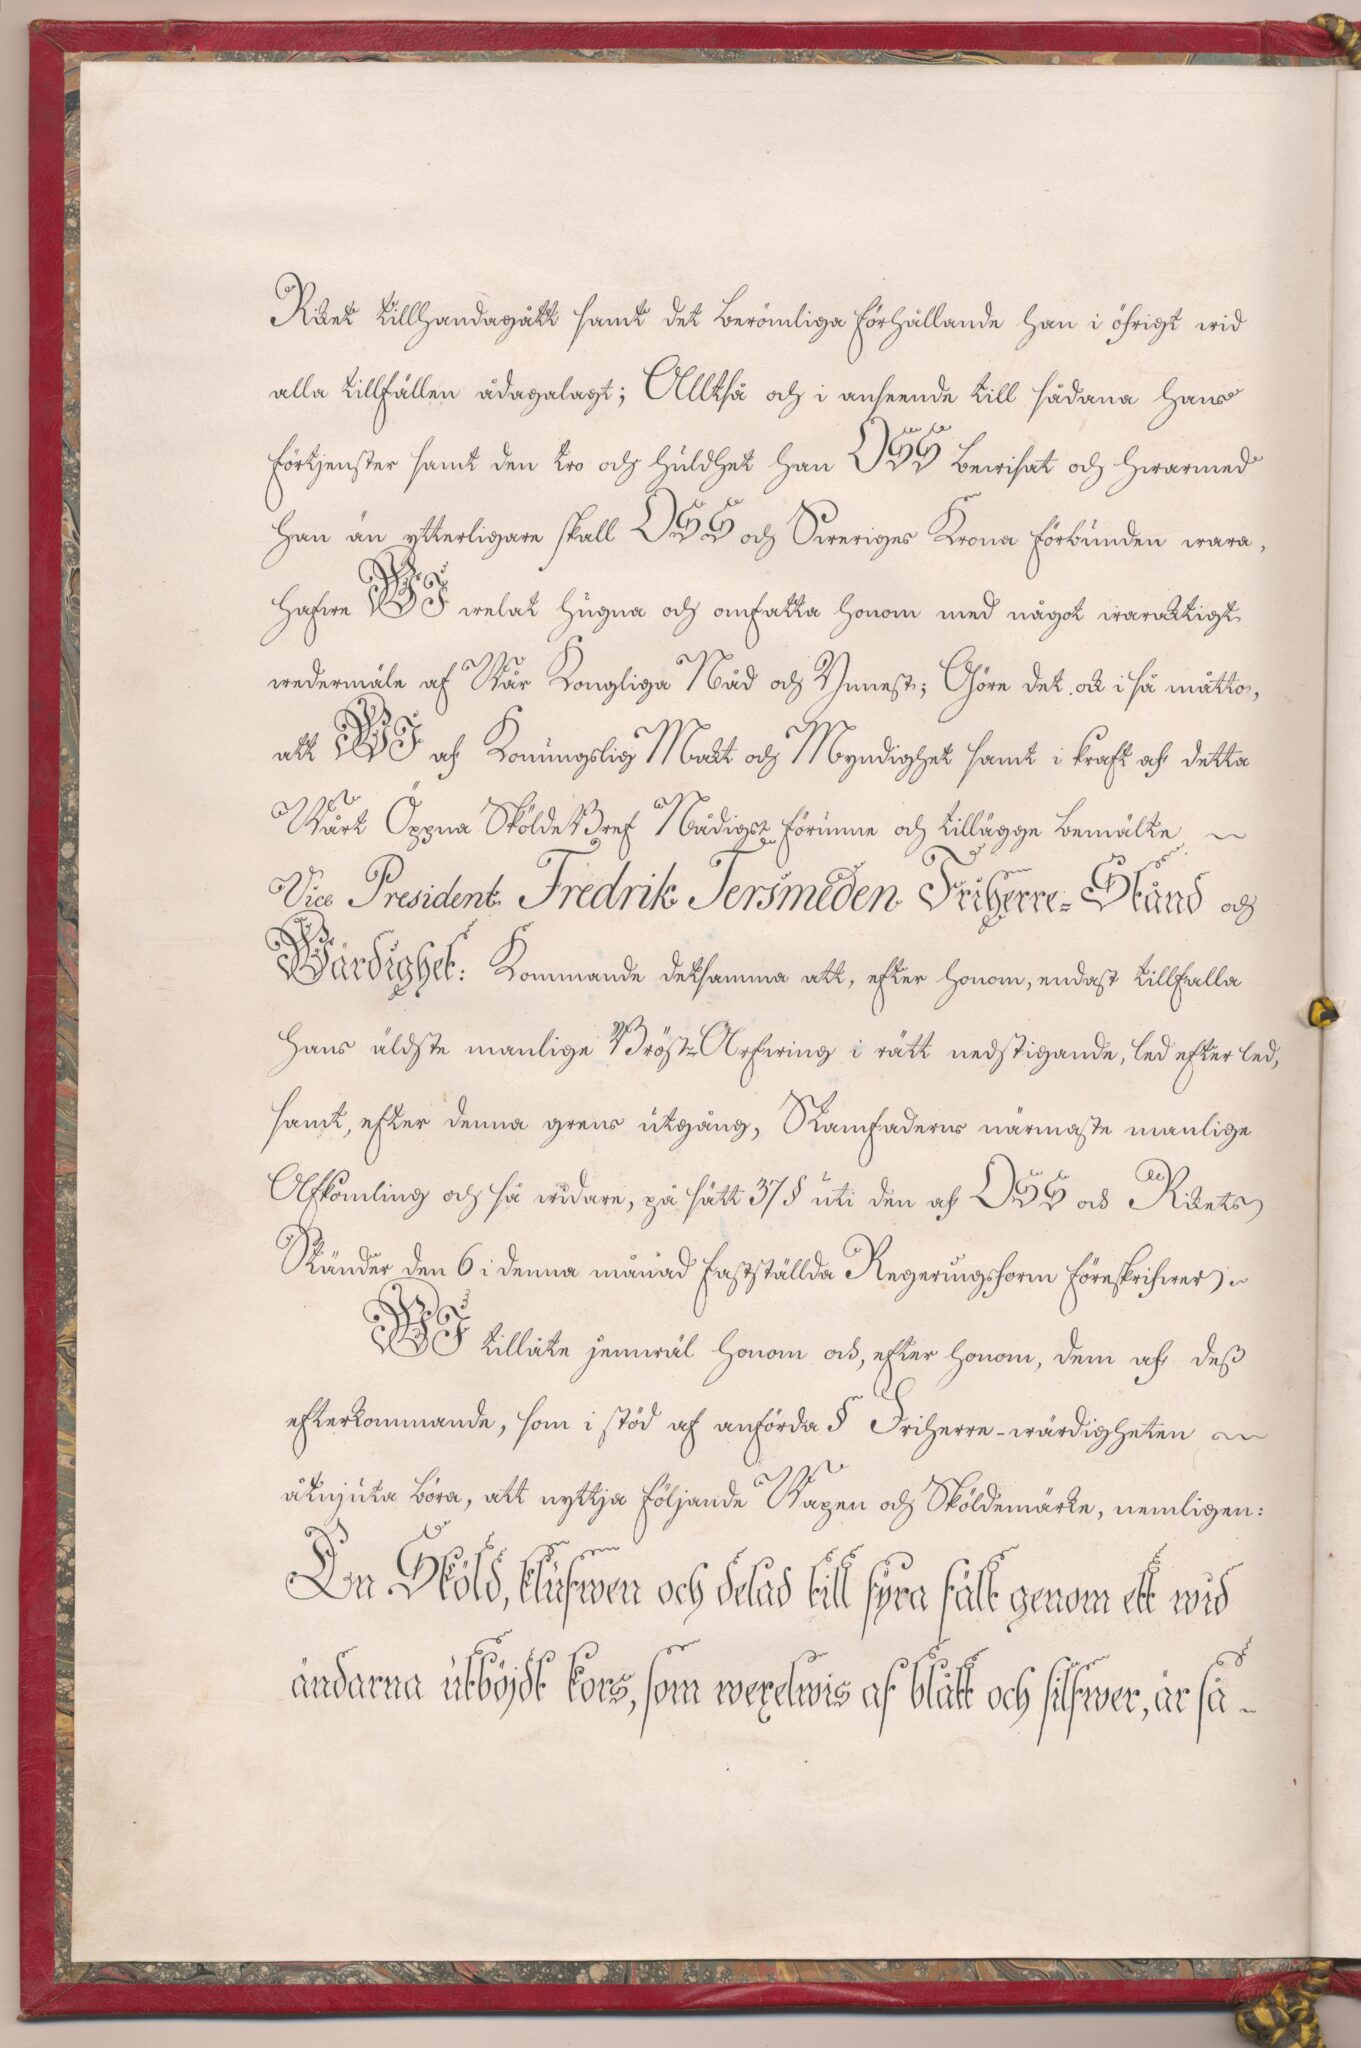 Riket tillhandagått samt det berömliga förhållande han i öfrigt wid
alla tillfällen ådagalagt; Alltså och i anseende till sådana hans
förtjenster samt den tro och huldhet han OSS bewisat och hwarmed
han än ytterligare skall OSS och Sweriges Krona förbunden wara,
hafwe WI welat hugna och omfatta honom med något waraktigt
wedermäle af Wår Kongliga Nåd och Ynnest; Göre det ock i så måtto,
att WI af Konungslig Makt och Myndighet samt i kraft af detta
Wårt Öppna SköldeBref Nådigst förunne och tillägge bemälte
Vice President Fredrik Tersmeden Friherre-Stånd och
Wärdighet: Kommande detsamma att, efter honom, endast tillfalla
hans äldste manlige Bröst-Arfwing i rätt nedstigande, led efter led,
samt, efter denna grens utgång, Stamfaderns närmaste manlige
Afkomling och så widare, på sätt 37 § uti den af OSS och Rikets
Ständer den 6 i denna månad fastställda Regeringsform föreskrifwer.
WI tillåte jemwäl honom och, efter honom, dem af deß
efterkommande, som i stöd af anförda § Friherre-wärdigheten
åtnjuta böra, att nyttja följande Wapen och Sköldemärke, nemligen:
En Sköld, klufwen och delad till fyra fält genom ett wid
ändarna utböjdt kors, som wexelwis af blått och silfwer, är så